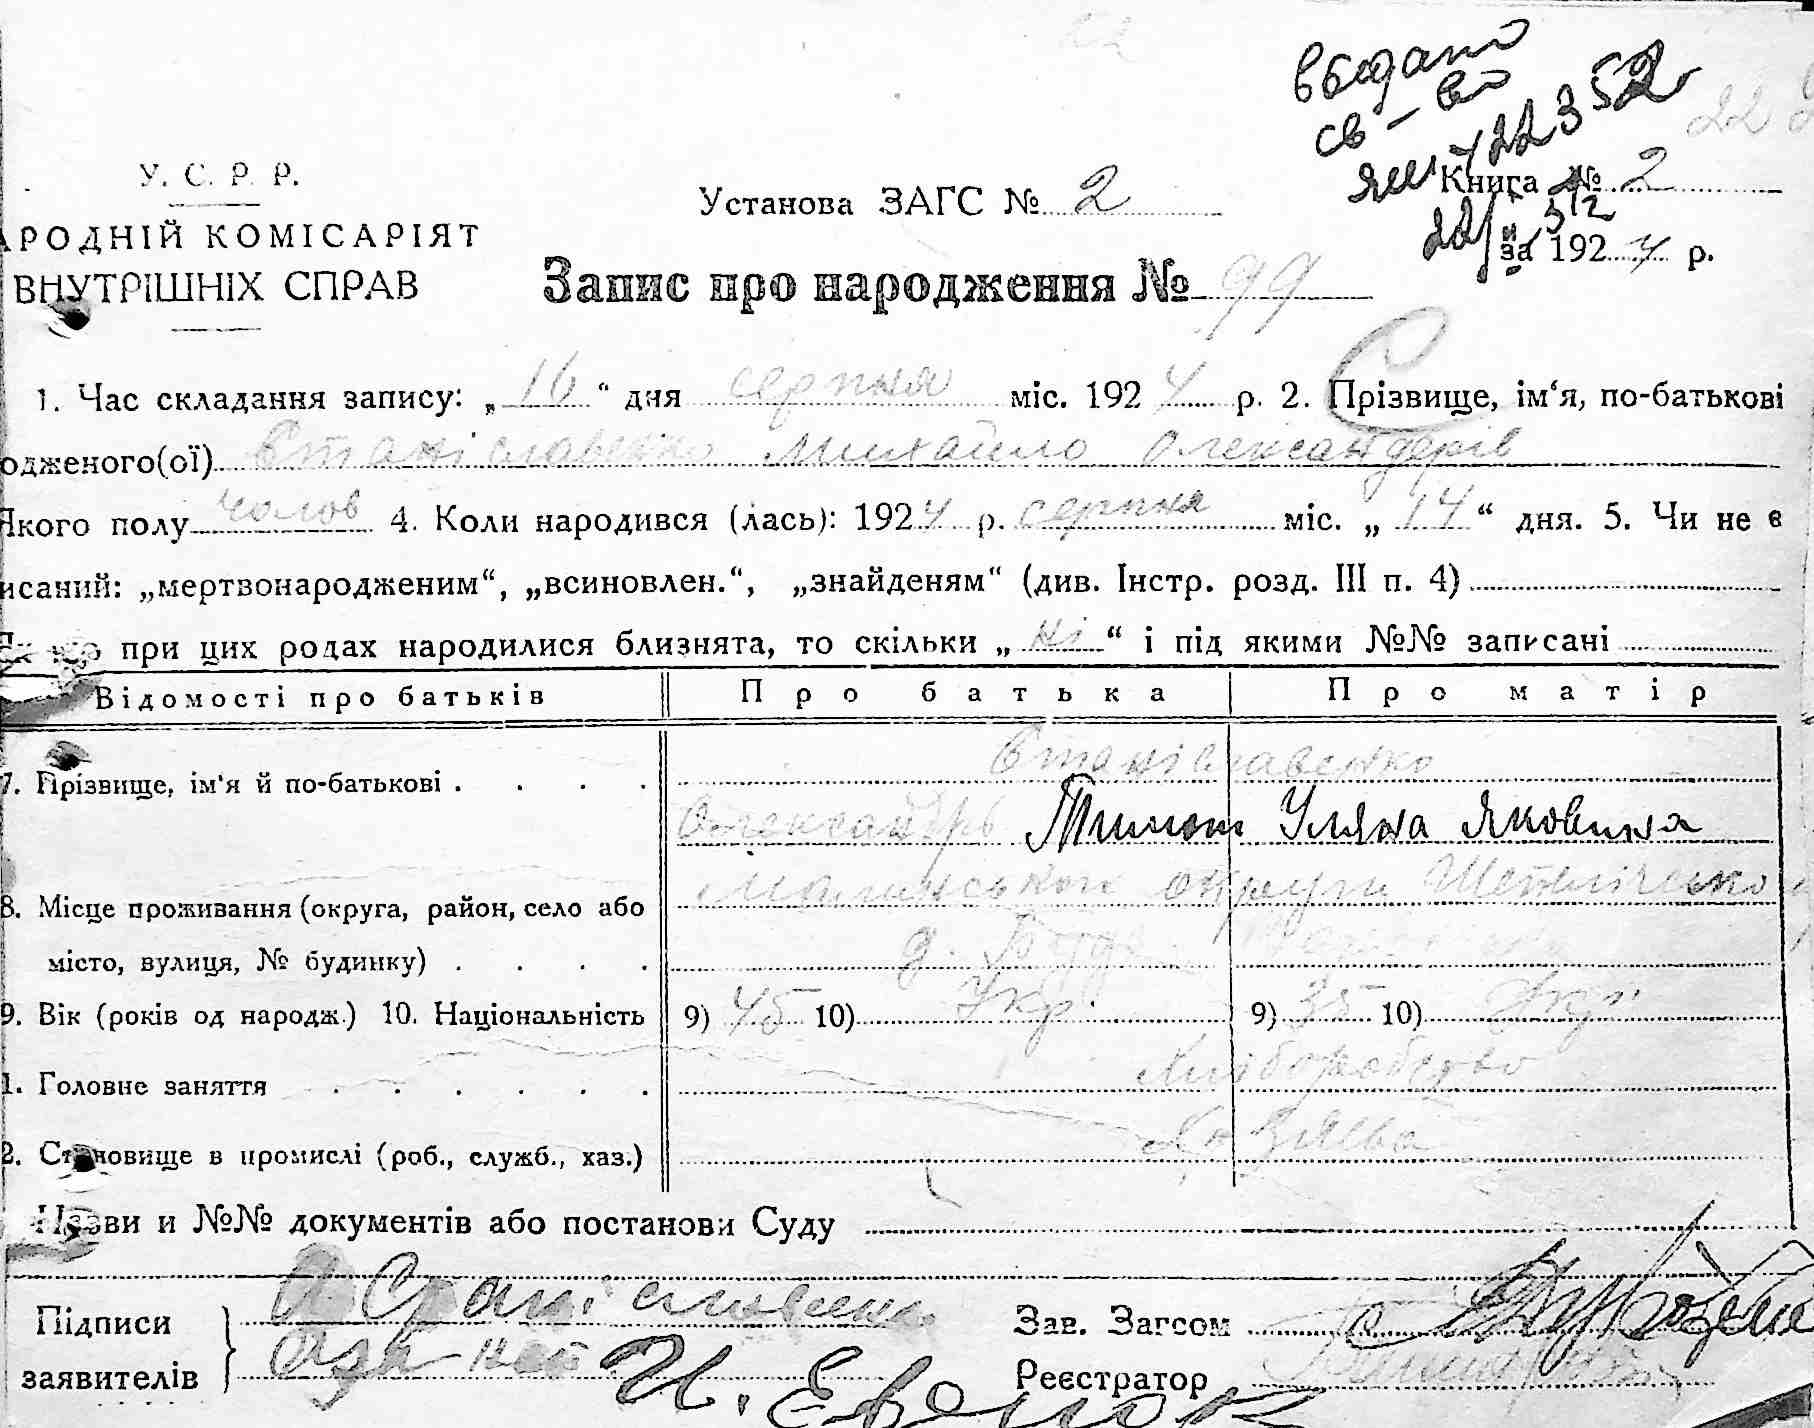 выдано
св-во
У. С. Р. Р.
Установа ЗАГС № 2
Книга № 2
РОДНІЙ КОМІСАРІЯТ
за 1924 р.
ВНУТРІШНІХ СПРАВ
Запис про народження № 99
1. Час складання запису: „16“ дня серпня міс. 1924 р. 2. Прізвище, ім‘я, по-батькові
одженого(ої) Станіславенко Михайло Олександерів
Якого полу чолов 4. Коли народився (лась): 1924 р. серпня міс. „14“ дня. 5. Чи не є
исаний: „мертвонародженим“, „всиновлен.“, „знайденям“ (див. Інстр. розд. III п. 4)
при цих родах народилися близнята, то скільки „ні“ і під якими №№ записані
Відомості про батьків Про батька Про матір
7. Прізвище, ім‘я й по-батькові . . . . Станіславенко
Олександр Тимош Уляна Яковина
8. Місце проживання (округа, район, село або Малинського округи
місто, вулиця, № будинку) . . . .
9. Вік (років од народж.) 10. Національність 9) 45 10) Укр 9) 35 10) Укр
1. Головне заняття . . . . . . Хліборобство
2. Становище в промислі (роб., служб., хаз.) Хазяева
Назви и №№ документів або постанови Суду
Підписи Станіславенко Зав. Загсом
заявителів Реєстратор